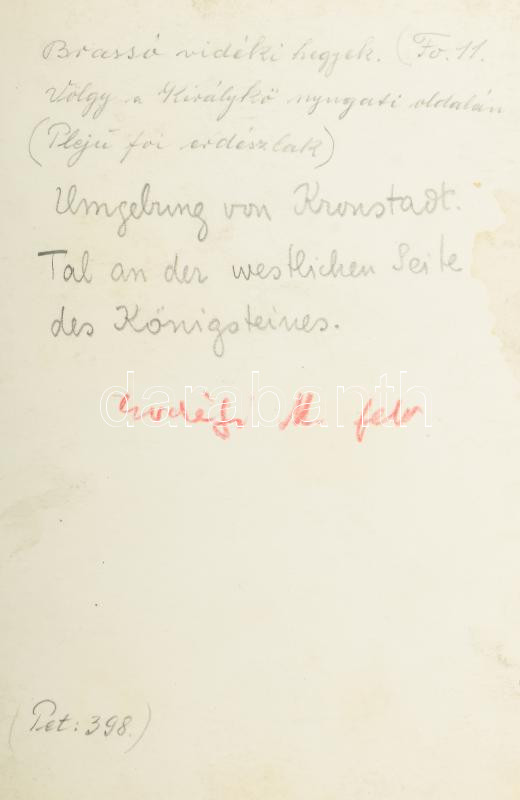 Brassó vidéki hegyek. (Fo. 11.
Völgy a Királykő nyugati oldalán
(Pleju foi erdészlak)
Umgebung von Kronstadt.
Tal an der westlichen Seite
des Königsteines.
M. felv
darabanth
(Pet: 398.)